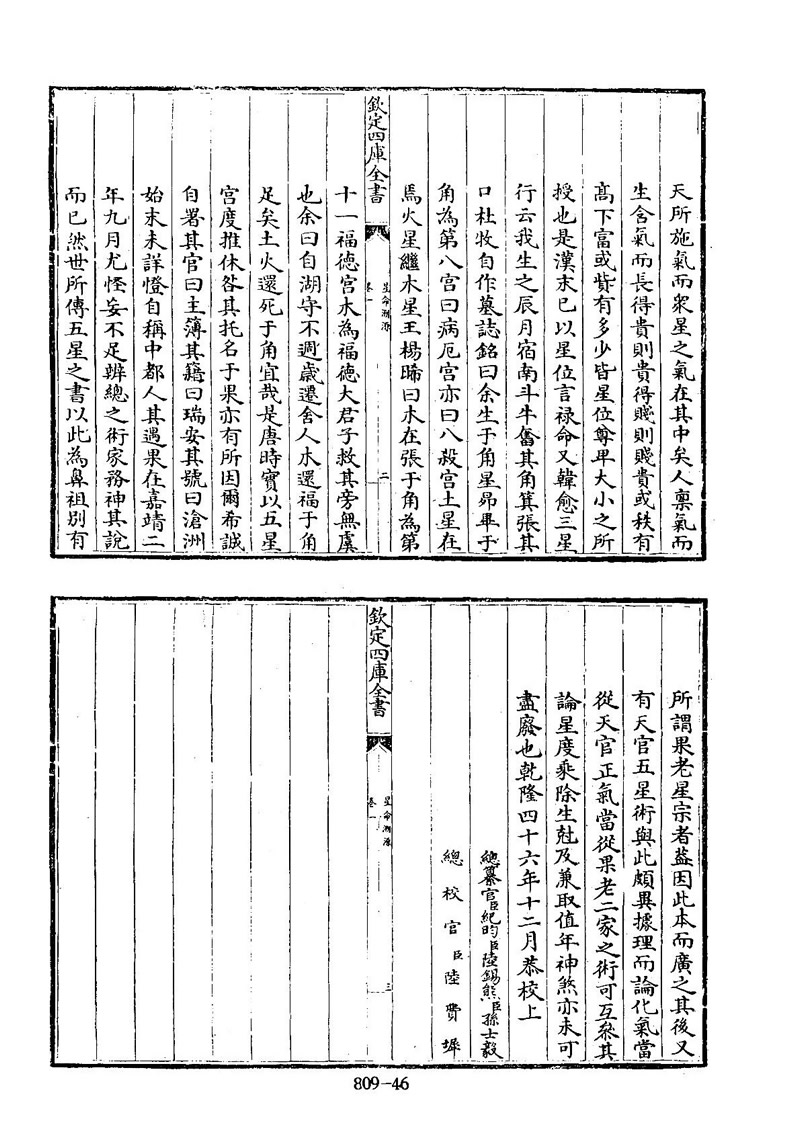 天所施氣而衆星之氣在其中矣人禀氣而
生含氣而長得貴則貴得賤則賤貴或秩有
髙下富或貲有多少皆星位尊卑大小之所
授也是漢末已以星位言禄命又韓愈三星
行云我生之辰月宿南斗牛奮其角箕張其
口杜牧自作墓誌銘曰余生于角星昴畢于
角為第八宫曰病厄宫亦曰八殺宫土星在
焉火星繼木星王楊晞曰木在張于角為第
欽定四庫全書
星命溯源
卷一
二
十一福徳宫木為福徳大君子救其旁無虞
也余曰自湖守不週歲遷舍人木還福于角
足矣土火還死于角宜哉是唐時實以五星
宫度推休咎其托名于果亦有所因爾希誠
自署其官曰主簿其籍曰瑞安其號曰滄洲
始末未詳憕自稱中都人其遇果在嘉靖二
年九月尤怪妄不足辨總之術家務神其說
而已然世所傳五星之書以此為鼻祖別有
所謂果老星宗者葢因此本而廣之其後又
有天官五星術與此頗異據理而論化氣當
從天官正氣當從果老二家之術可互叅其
論星度乘除生尅及兼取值年神煞亦未可
盡廢也乾隆四十六年十二月恭校上
總纂官臣紀昀臣陸錫熊臣孫士毅
總校官臣陸費墀
欽定四庫全書
星命溯源
卷一
三
809-46